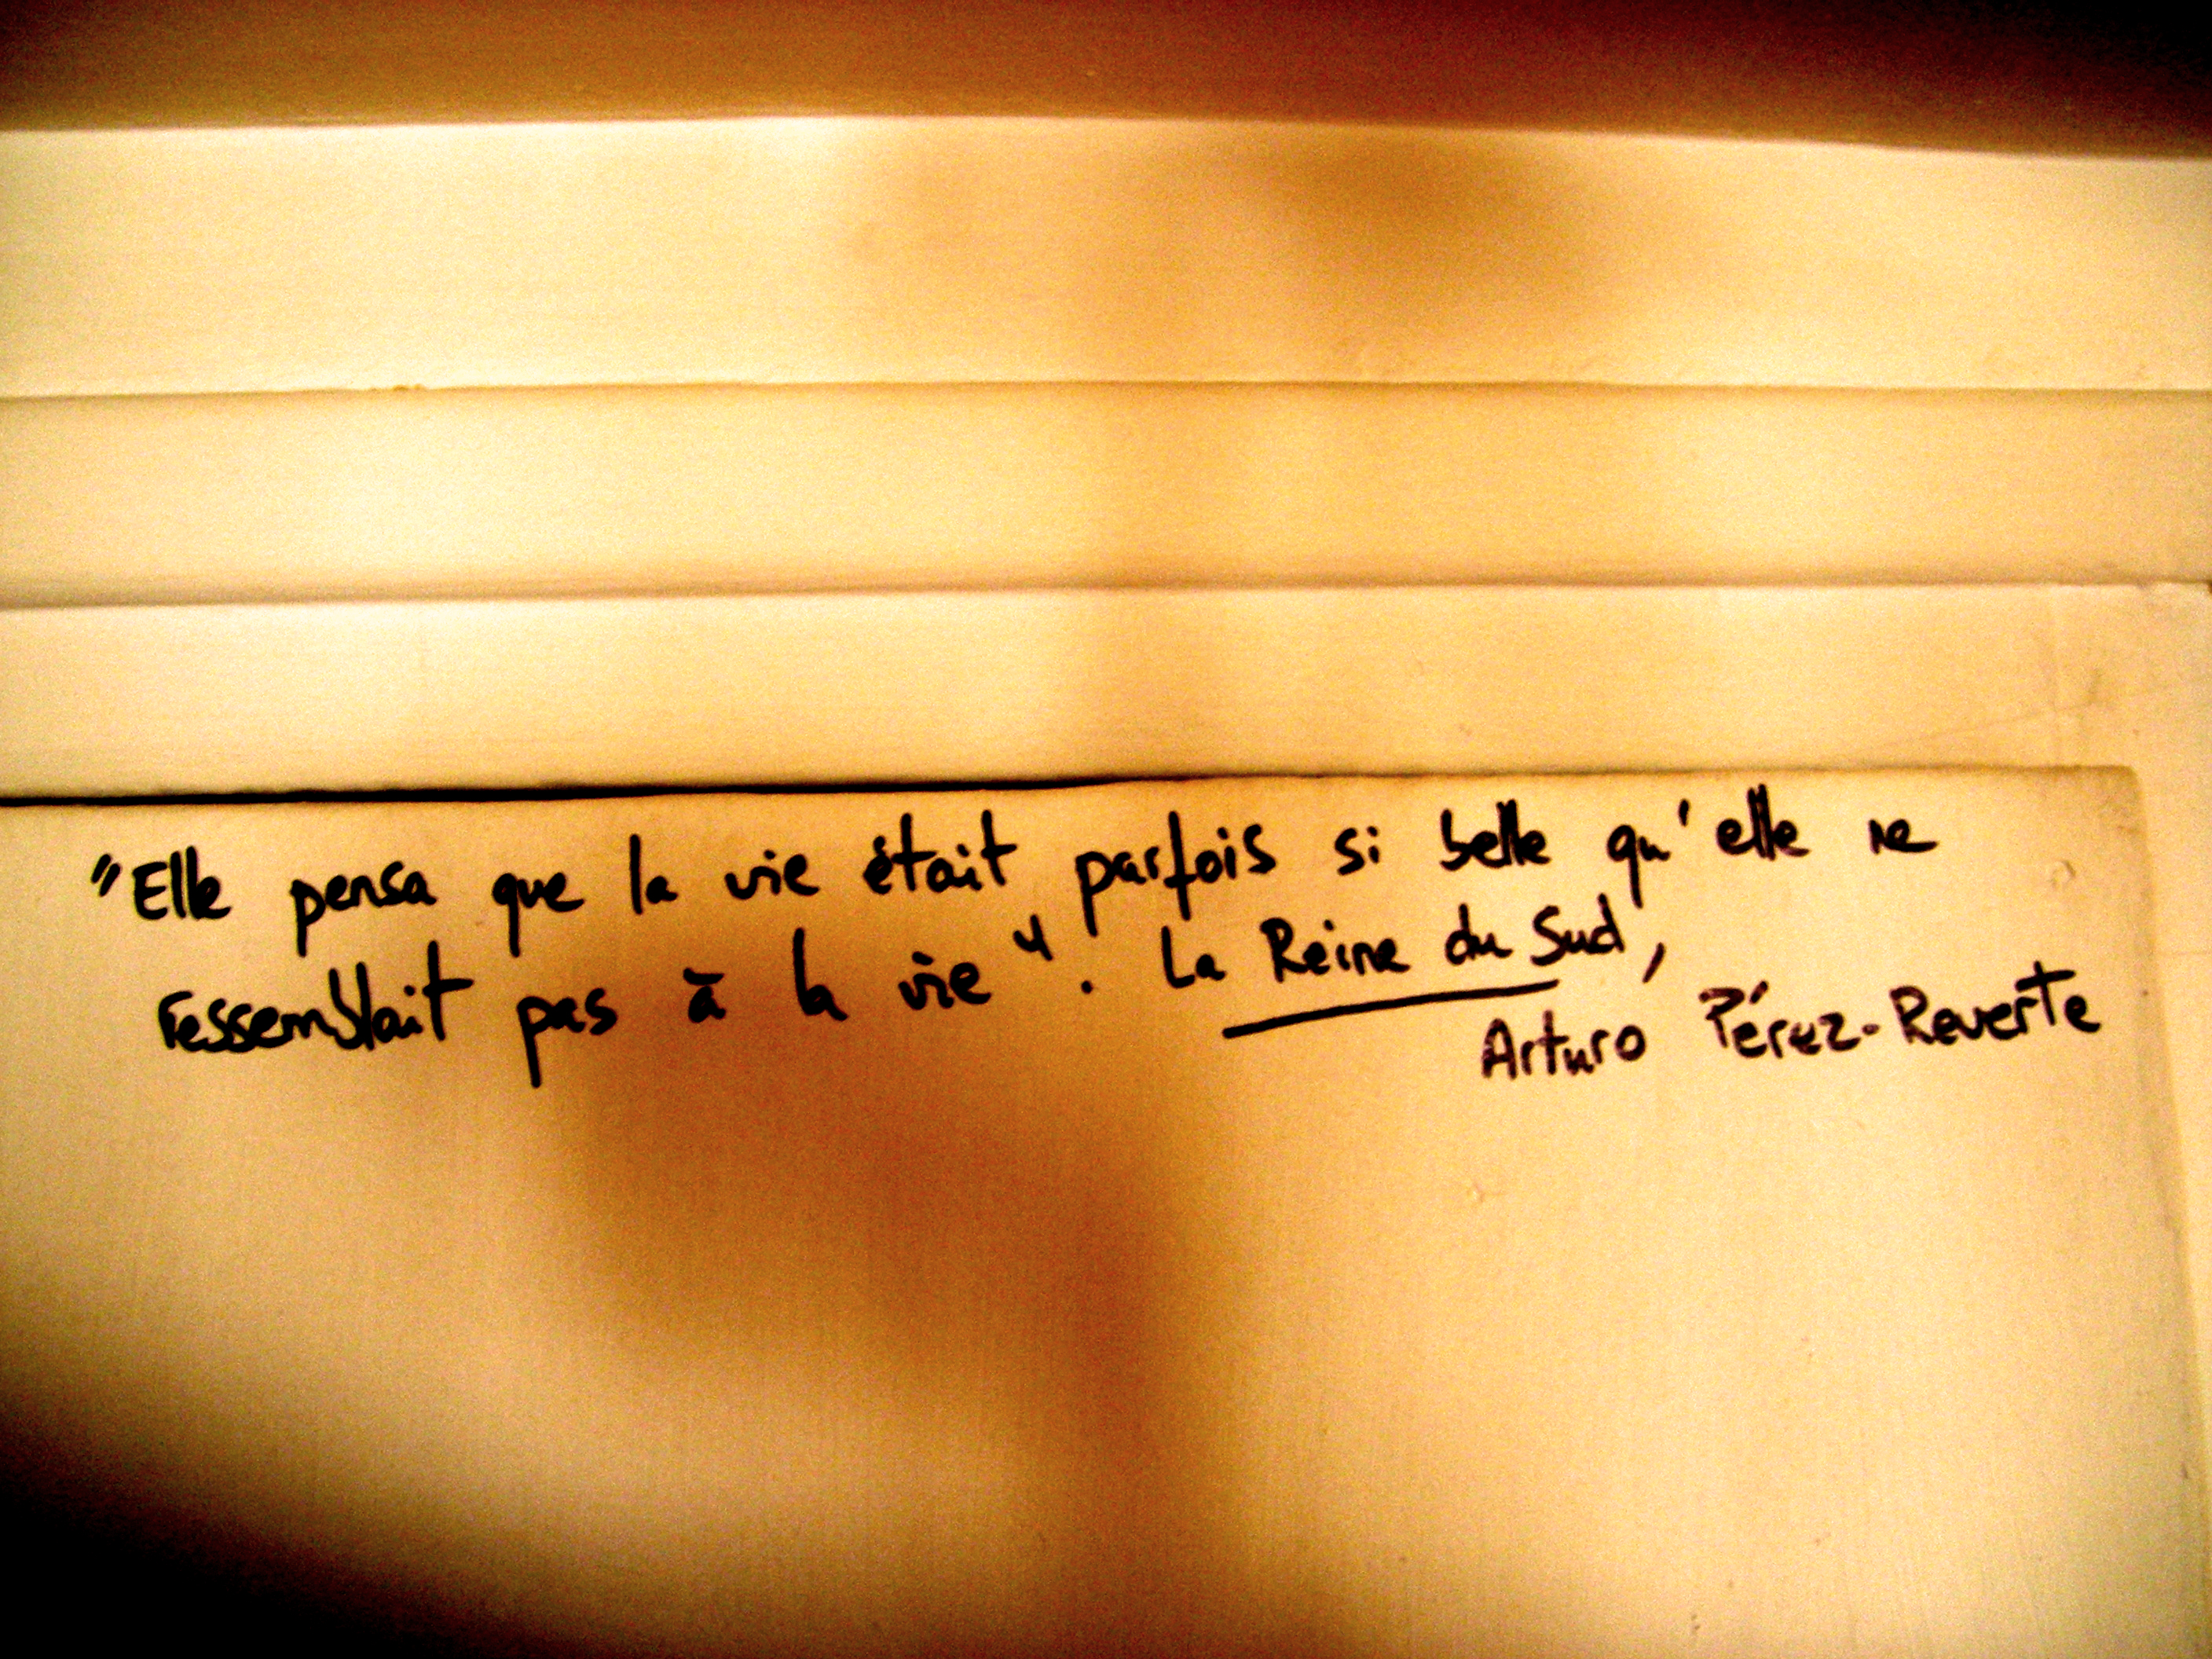 "Elle pensa que la vie était parfois si belle qu'elle ne
ressemblait pas à la vie". La Reine du Sud,
Arturo Pérez-Reverte